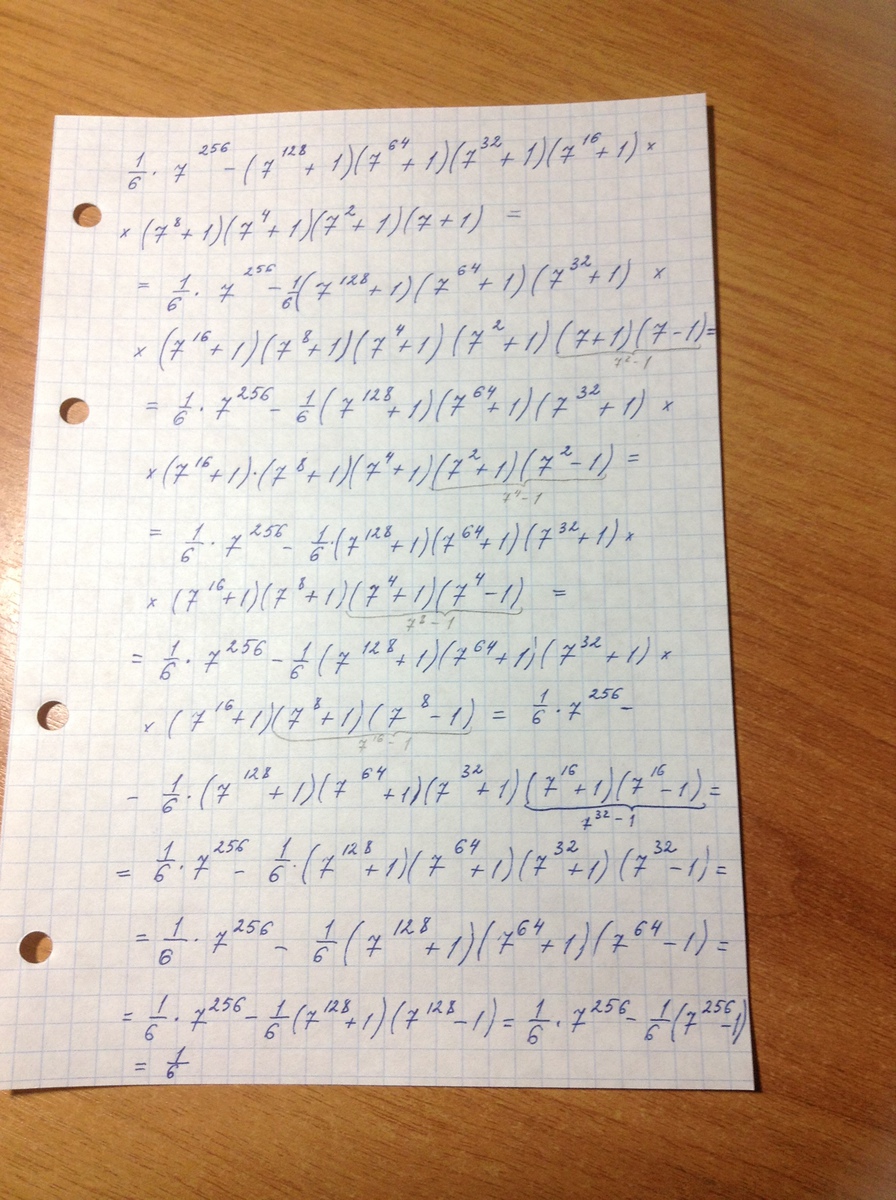 1/6 · 7^256 − (7^128 + 1)(7^64 + 1)(7^32 + 1)(7^16 + 1) ×
× (7^8 + 1)(7^4 + 1)(7^2 + 1)(7 + 1) =
= 1/6 · 7^256 − 1/6(7^128 + 1)(7^64 + 1)(7^32 + 1) ×
× (7^16 + 1)(7^8 + 1)(7^4 + 1)(7^2 + 1)(7 + 1)(7 − 1) =
7^2 − 1
= 1/6 · 7^256 − 1/6(7^128 + 1)(7^64 + 1)(7^32 + 1) ×
× (7^16 + 1) · (7^8 + 1)(7^4 + 1)(7^2 + 1)(7^2 − 1) =
7^4 − 1
= 1/6 · 7^256 − 1/6 · (7^128 + 1)(7^64 + 1)(7^32 + 1) ×
× (7^16 + 1)(7^8 + 1)(7^4 + 1)(7^4 − 1) =
7^8 − 1
= 1/6 · 7^256 − 1/6(7^128 + 1)(7^64 + 1)(7^32 + 1) ×
× (7^16 + 1)(7^8 + 1)(7^8 − 1) = 1/6 · 7^256 −
7^16 − 1
− 1/6 · (7^128 + 1)(7^64 + 1)(7^32 + 1)(7^16 + 1)(7^16 − 1) =
7^32 − 1
= 1/6 · 7^256 − 1/6 · (7^128 + 1)(7^64 + 1)(7^32 + 1)(7^32 − 1) =
= 1/6 · 7^256 − 1/6(7^128 + 1)(7^64 + 1)(7^64 − 1) =
= 1/6 · 7^256 − 1/6(7^128 + 1)(7^128 − 1) = 1/6 · 7^256 − 1/6(7^256 − 1)
= 1/6